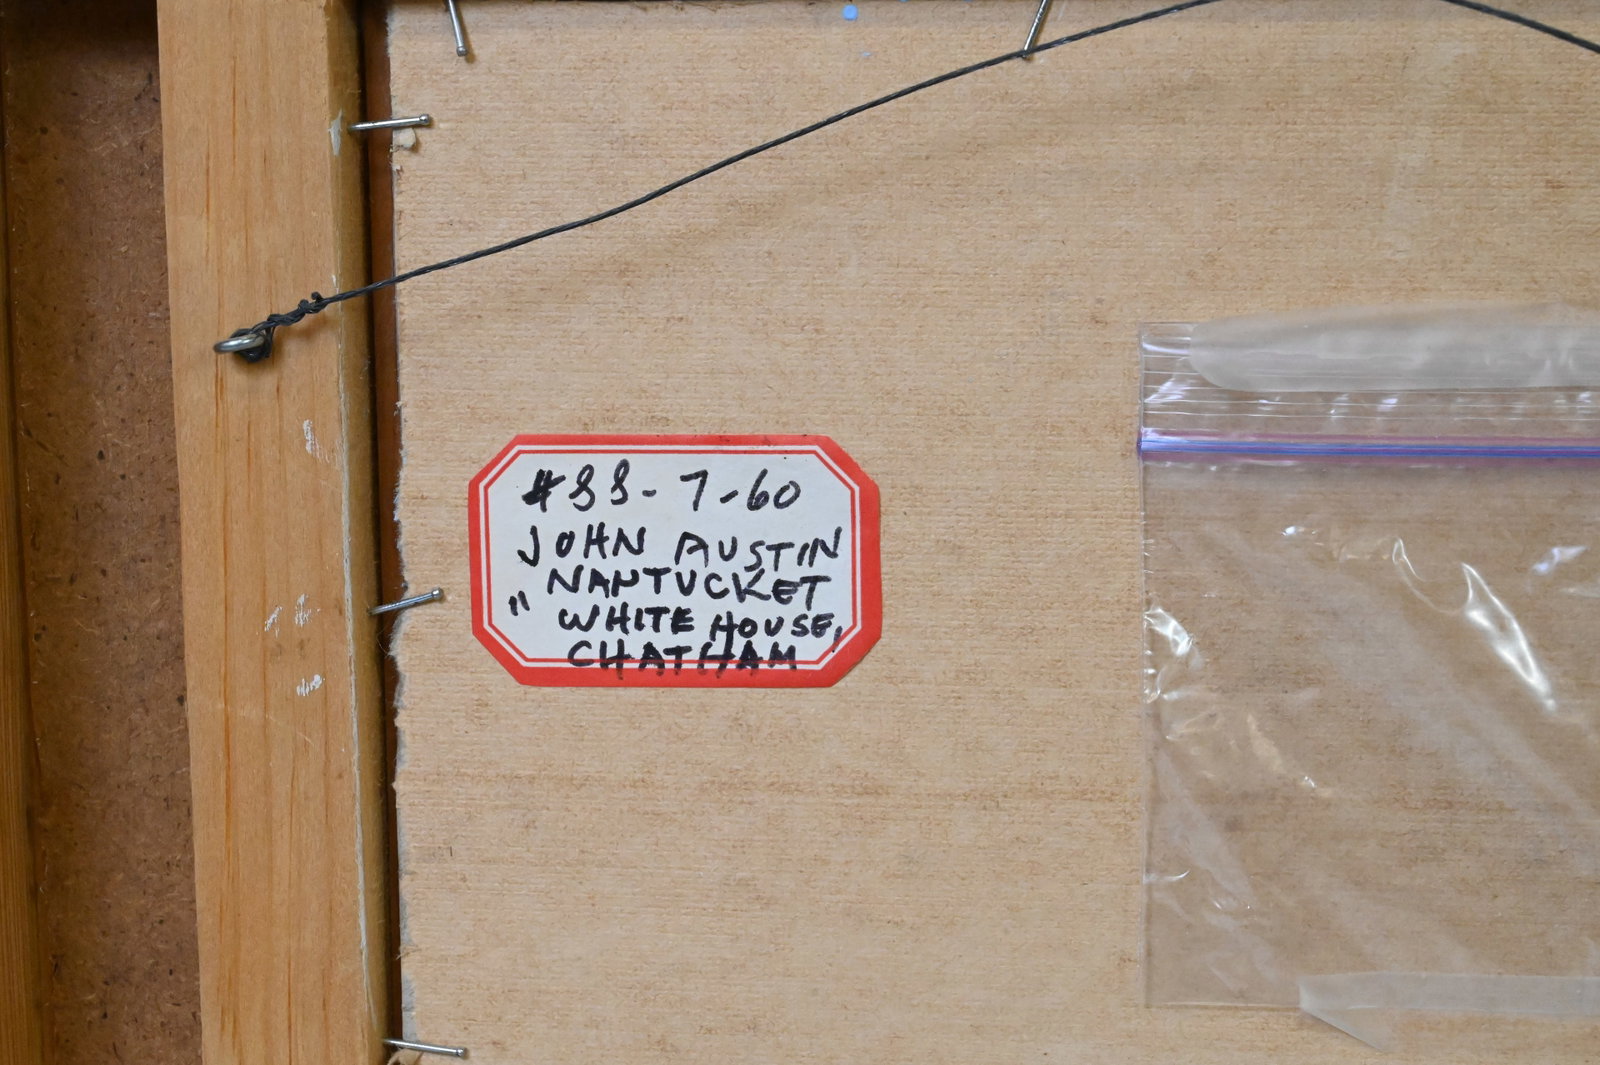 #88-7-60
JOHN AUSTIN
NANTUCKET
" WHITE HOUSE,
CHATHAM